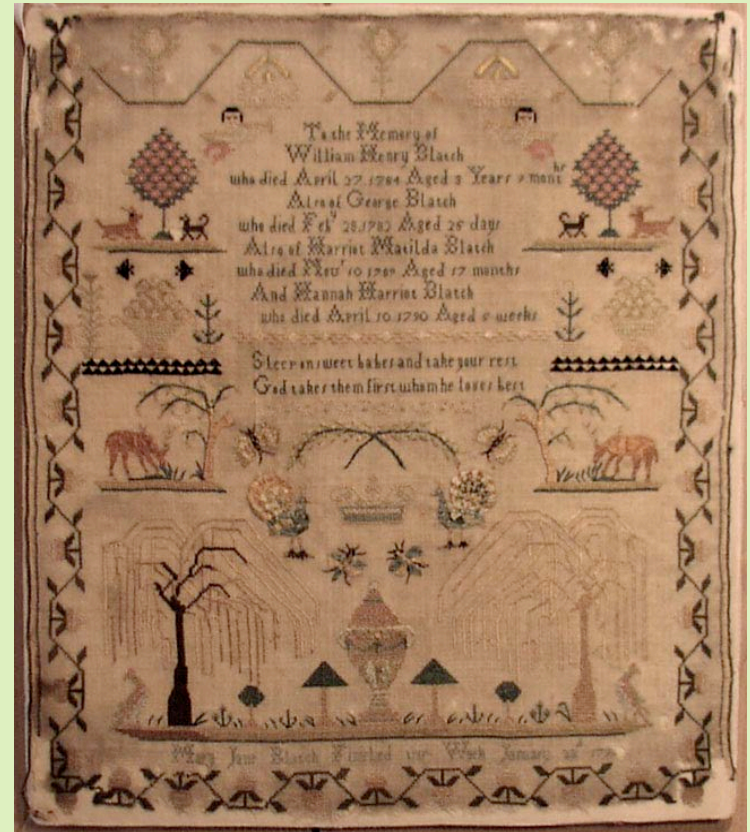 To the Memory of
William Henry Blatch
who died April 27 1784 Aged 3 Years 9 mont hs
Also of George Blatch
who died Feby 28 1782 Aged 25 days
Also of Harriot Matilda Blatch
who died Novr 10 1789 Aged 17 months
And Hannah Harriot Blatch
who died April 10 1790 Aged 5 weeks
Sleep on sweet babes and take your rest
God takes them first whom he loves best
Mary Jane Blatch Finished Work January